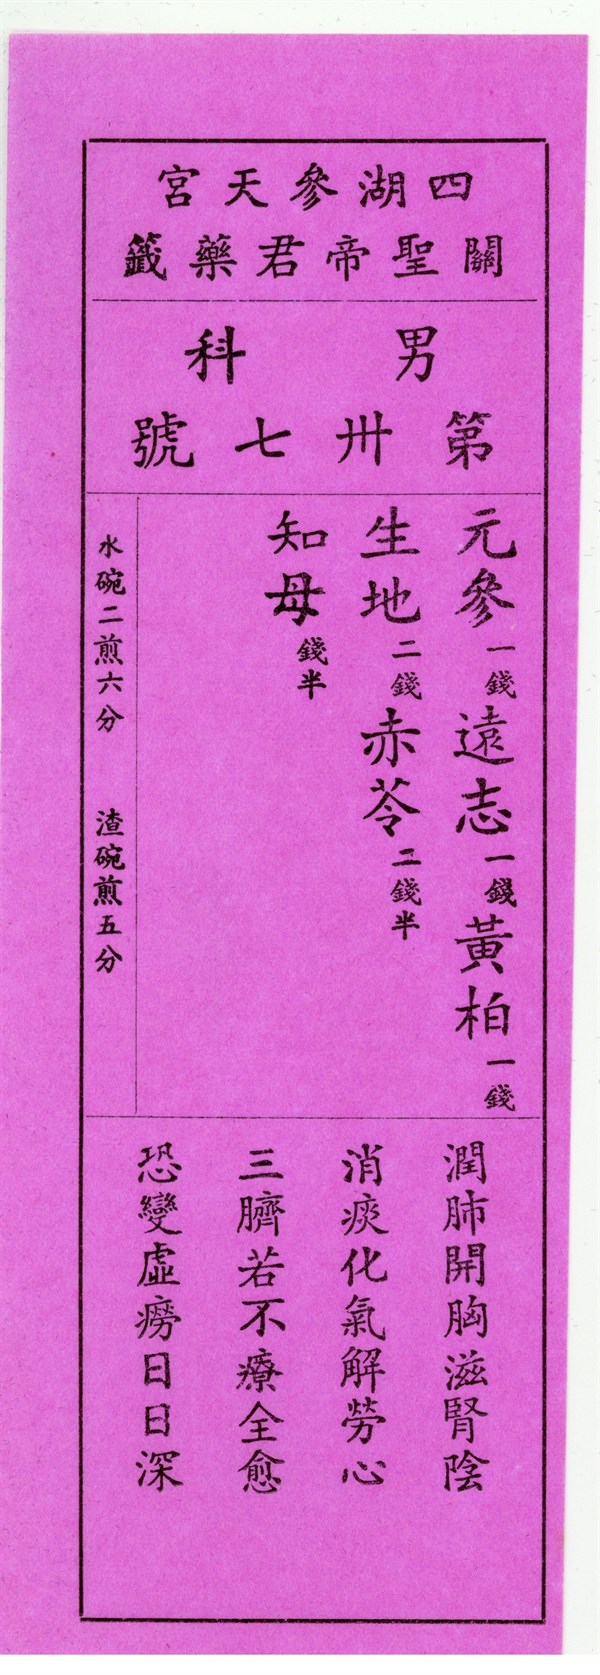 四湖參天宮
關聖帝君藥籤
男科
第卅七號
元參一錢遠志一錢黃柏一錢
生地二錢赤苓二錢半
知母錢半
水碗二煎六分 渣碗煎五分
潤肺開胸滋腎陰
消痰化氣解勞心
三臍若不療全愈
恐變虛癆日日深